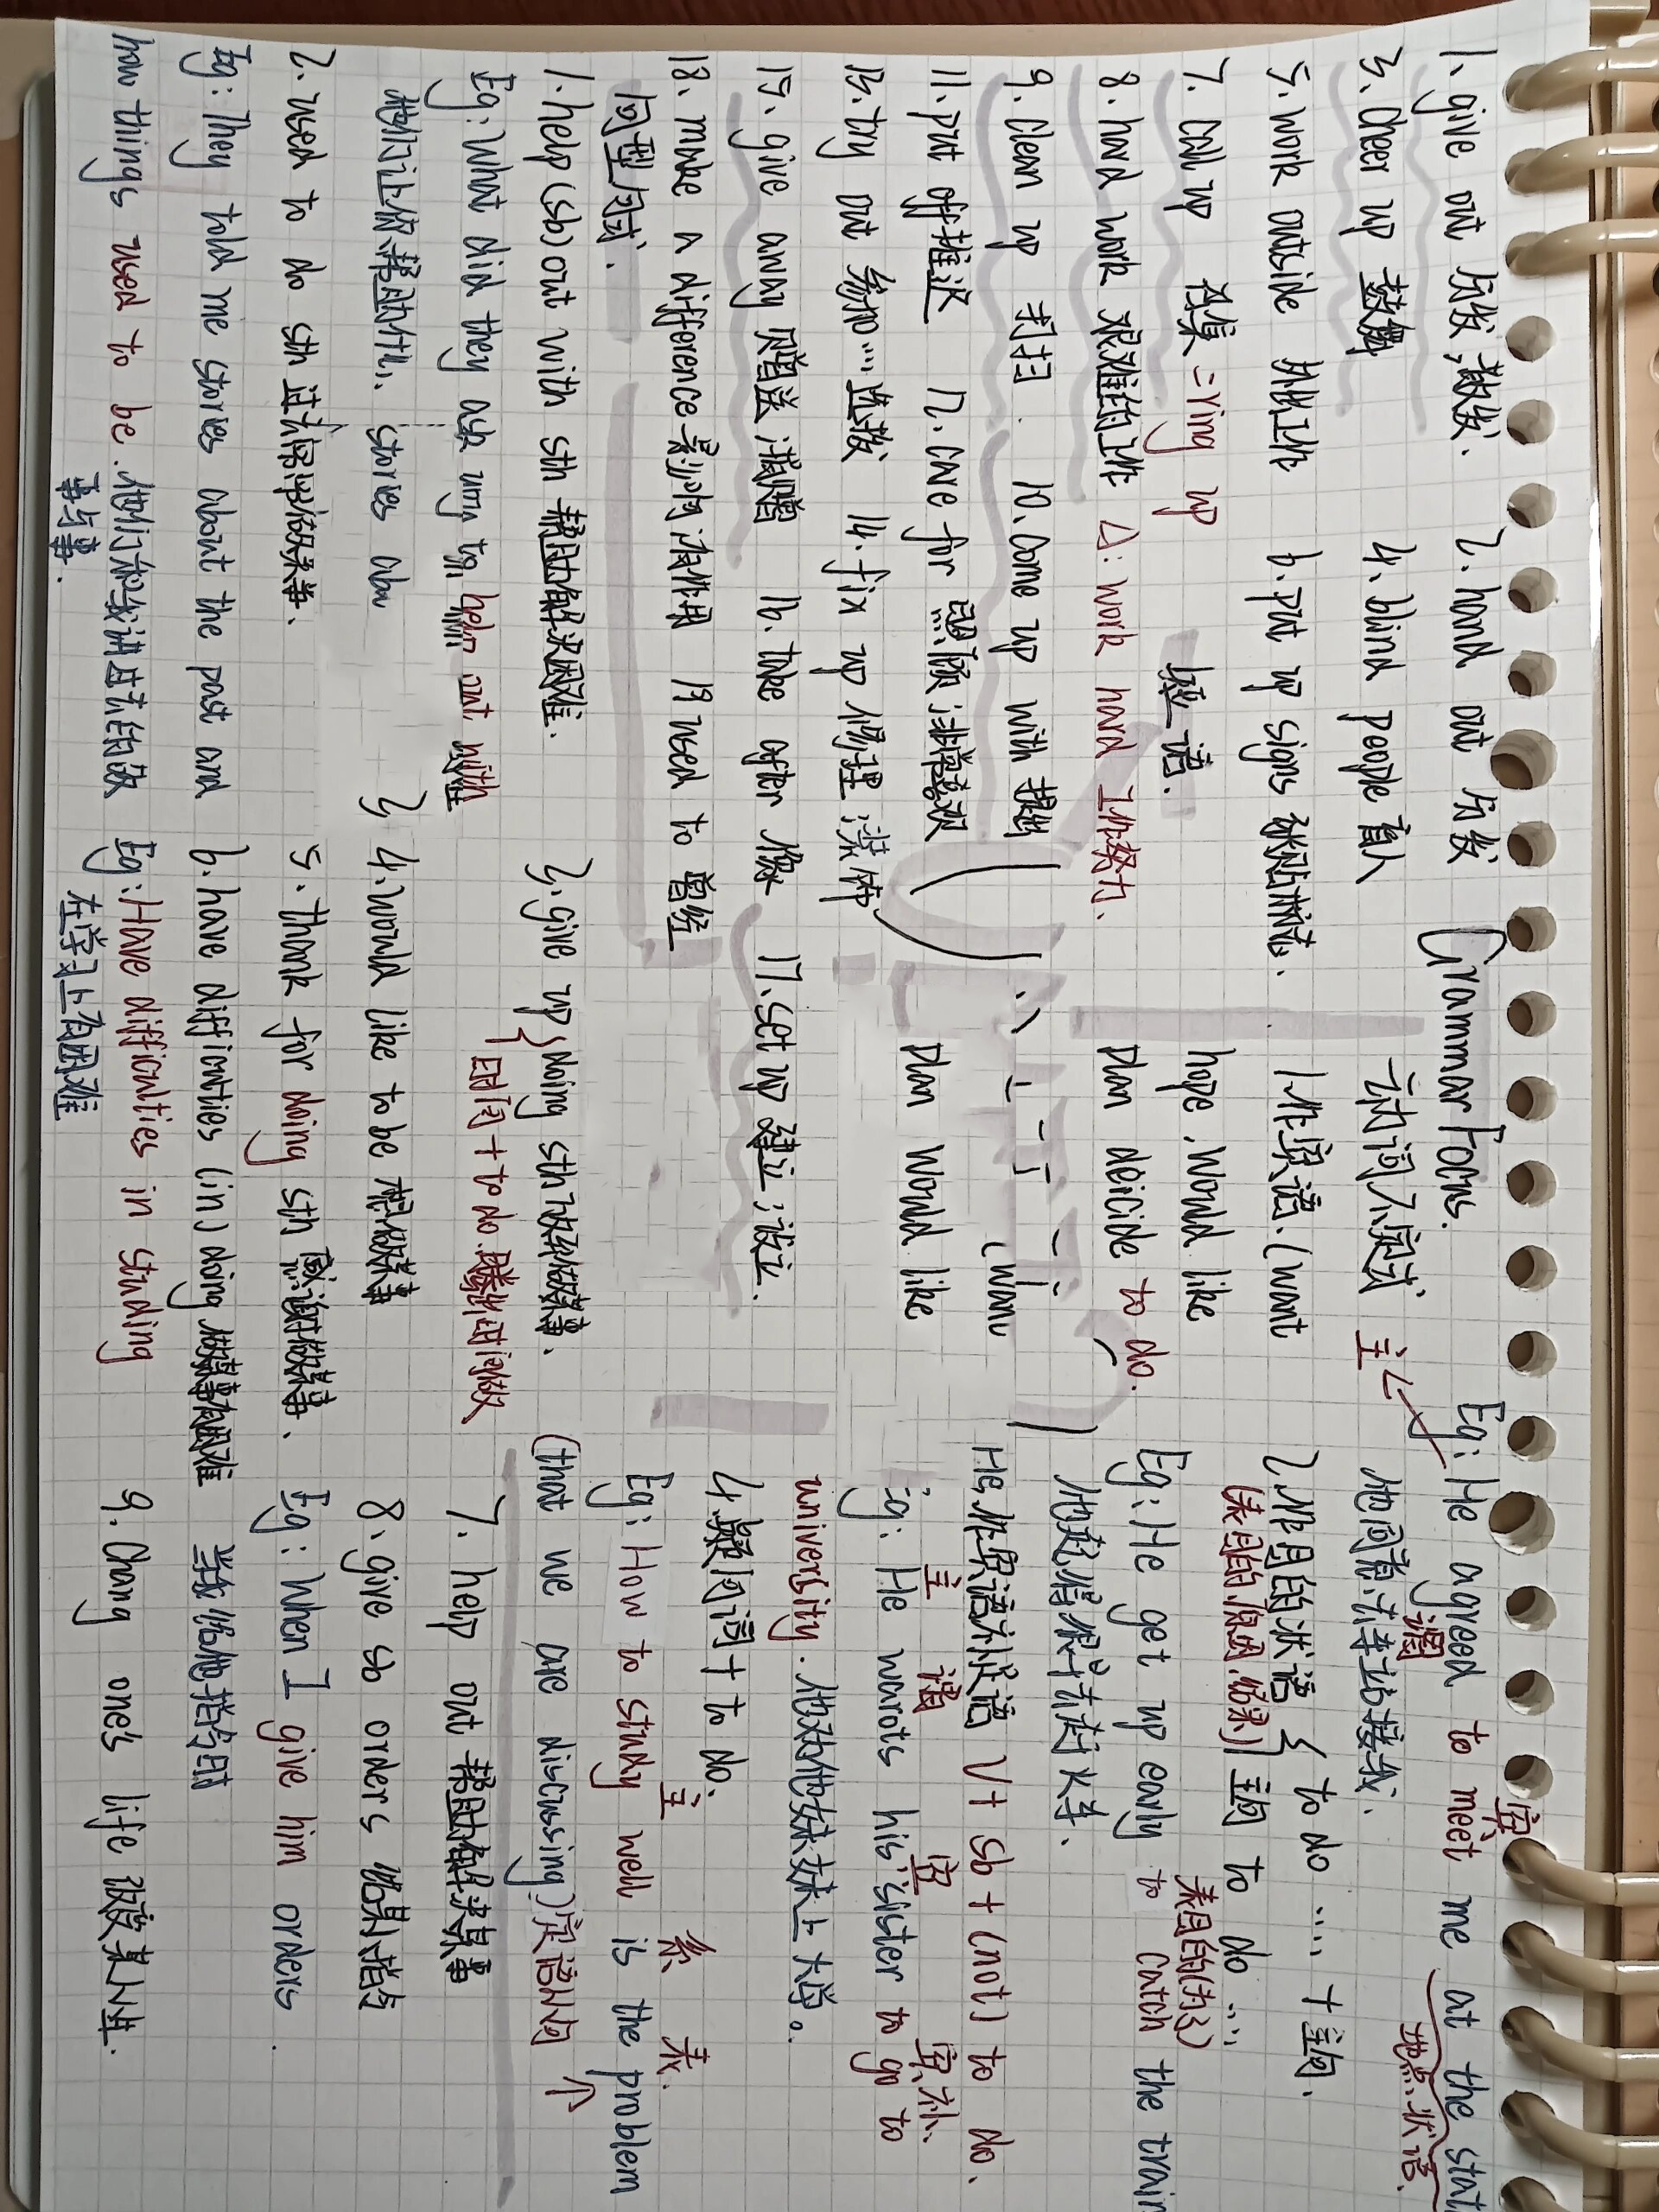 1、give out 分发,散发、 2、hand out 分发
3、Cheer up 鼓舞 4、blind people 盲人
5、work outside 外出工作 6、put up signs 张贴标志、
7、call up 召集 =ring up 短语.
8、hard work 艰难的工作 △: work hard 工作努力、
9、clean up 打扫. 10、come up with 提出
11、put off 推迟 12、care for 照顾;非常喜欢
13、try out 参加…选拔 14、fix up 修理;装饰
15、give away 赠送;捐赠 16、take after 像 17、set up 建立;设立.
18、make a difference 影响;有作用 19 used to 曾经
句型句式.
1、help (sb) out with sth 帮助解决困难.
Eg: What did they ask you to help out with
他们让你帮助什么、 stories abou
2、used to do sth 过去常常做某事、
Eg: They told me stories about the past and
how things used to be. 他们和我讲过去的故
事与事.
3、give up doing sth 放弃做某事.
时间+to do.腾出时间做
4、would like to be 想做某事
5、thank for doing sth 感谢做某事.
6、have difficnties (in) doing 做某事有困难
Eg: Have difficulties in studing
在学习上有困难
Grammar Focus.
动词不定式
1、作宾语、(want
hope、would like
plan deicide to do.
(want
plan would like
Eg: He agreed to meet me at the stat
主 谓 宾 地点状语
他同意去车站接我.
2、作目的状语 { to do … +主句.
(表目的、原因、结果) 主句 to do …
表目的(为了)
Eg: He get up early to catch the train
他起得很早去赶火车、
作宾语补足语 Vt sb + (not) to do、
主 谓 宾 宾补、
Eg: He wants his sister to go to
university. 他劝他妹妹上大学。
4、疑问词+to do.
主 系 表.
Eg: How to study well is the problem
(that we are discussing)定语从句 个
7、help out 帮助解决某事
8、give sb orders 给某人指令
Eg: when I give him orders.
当我给他指令时
9、Chang one's life 改变某人生.